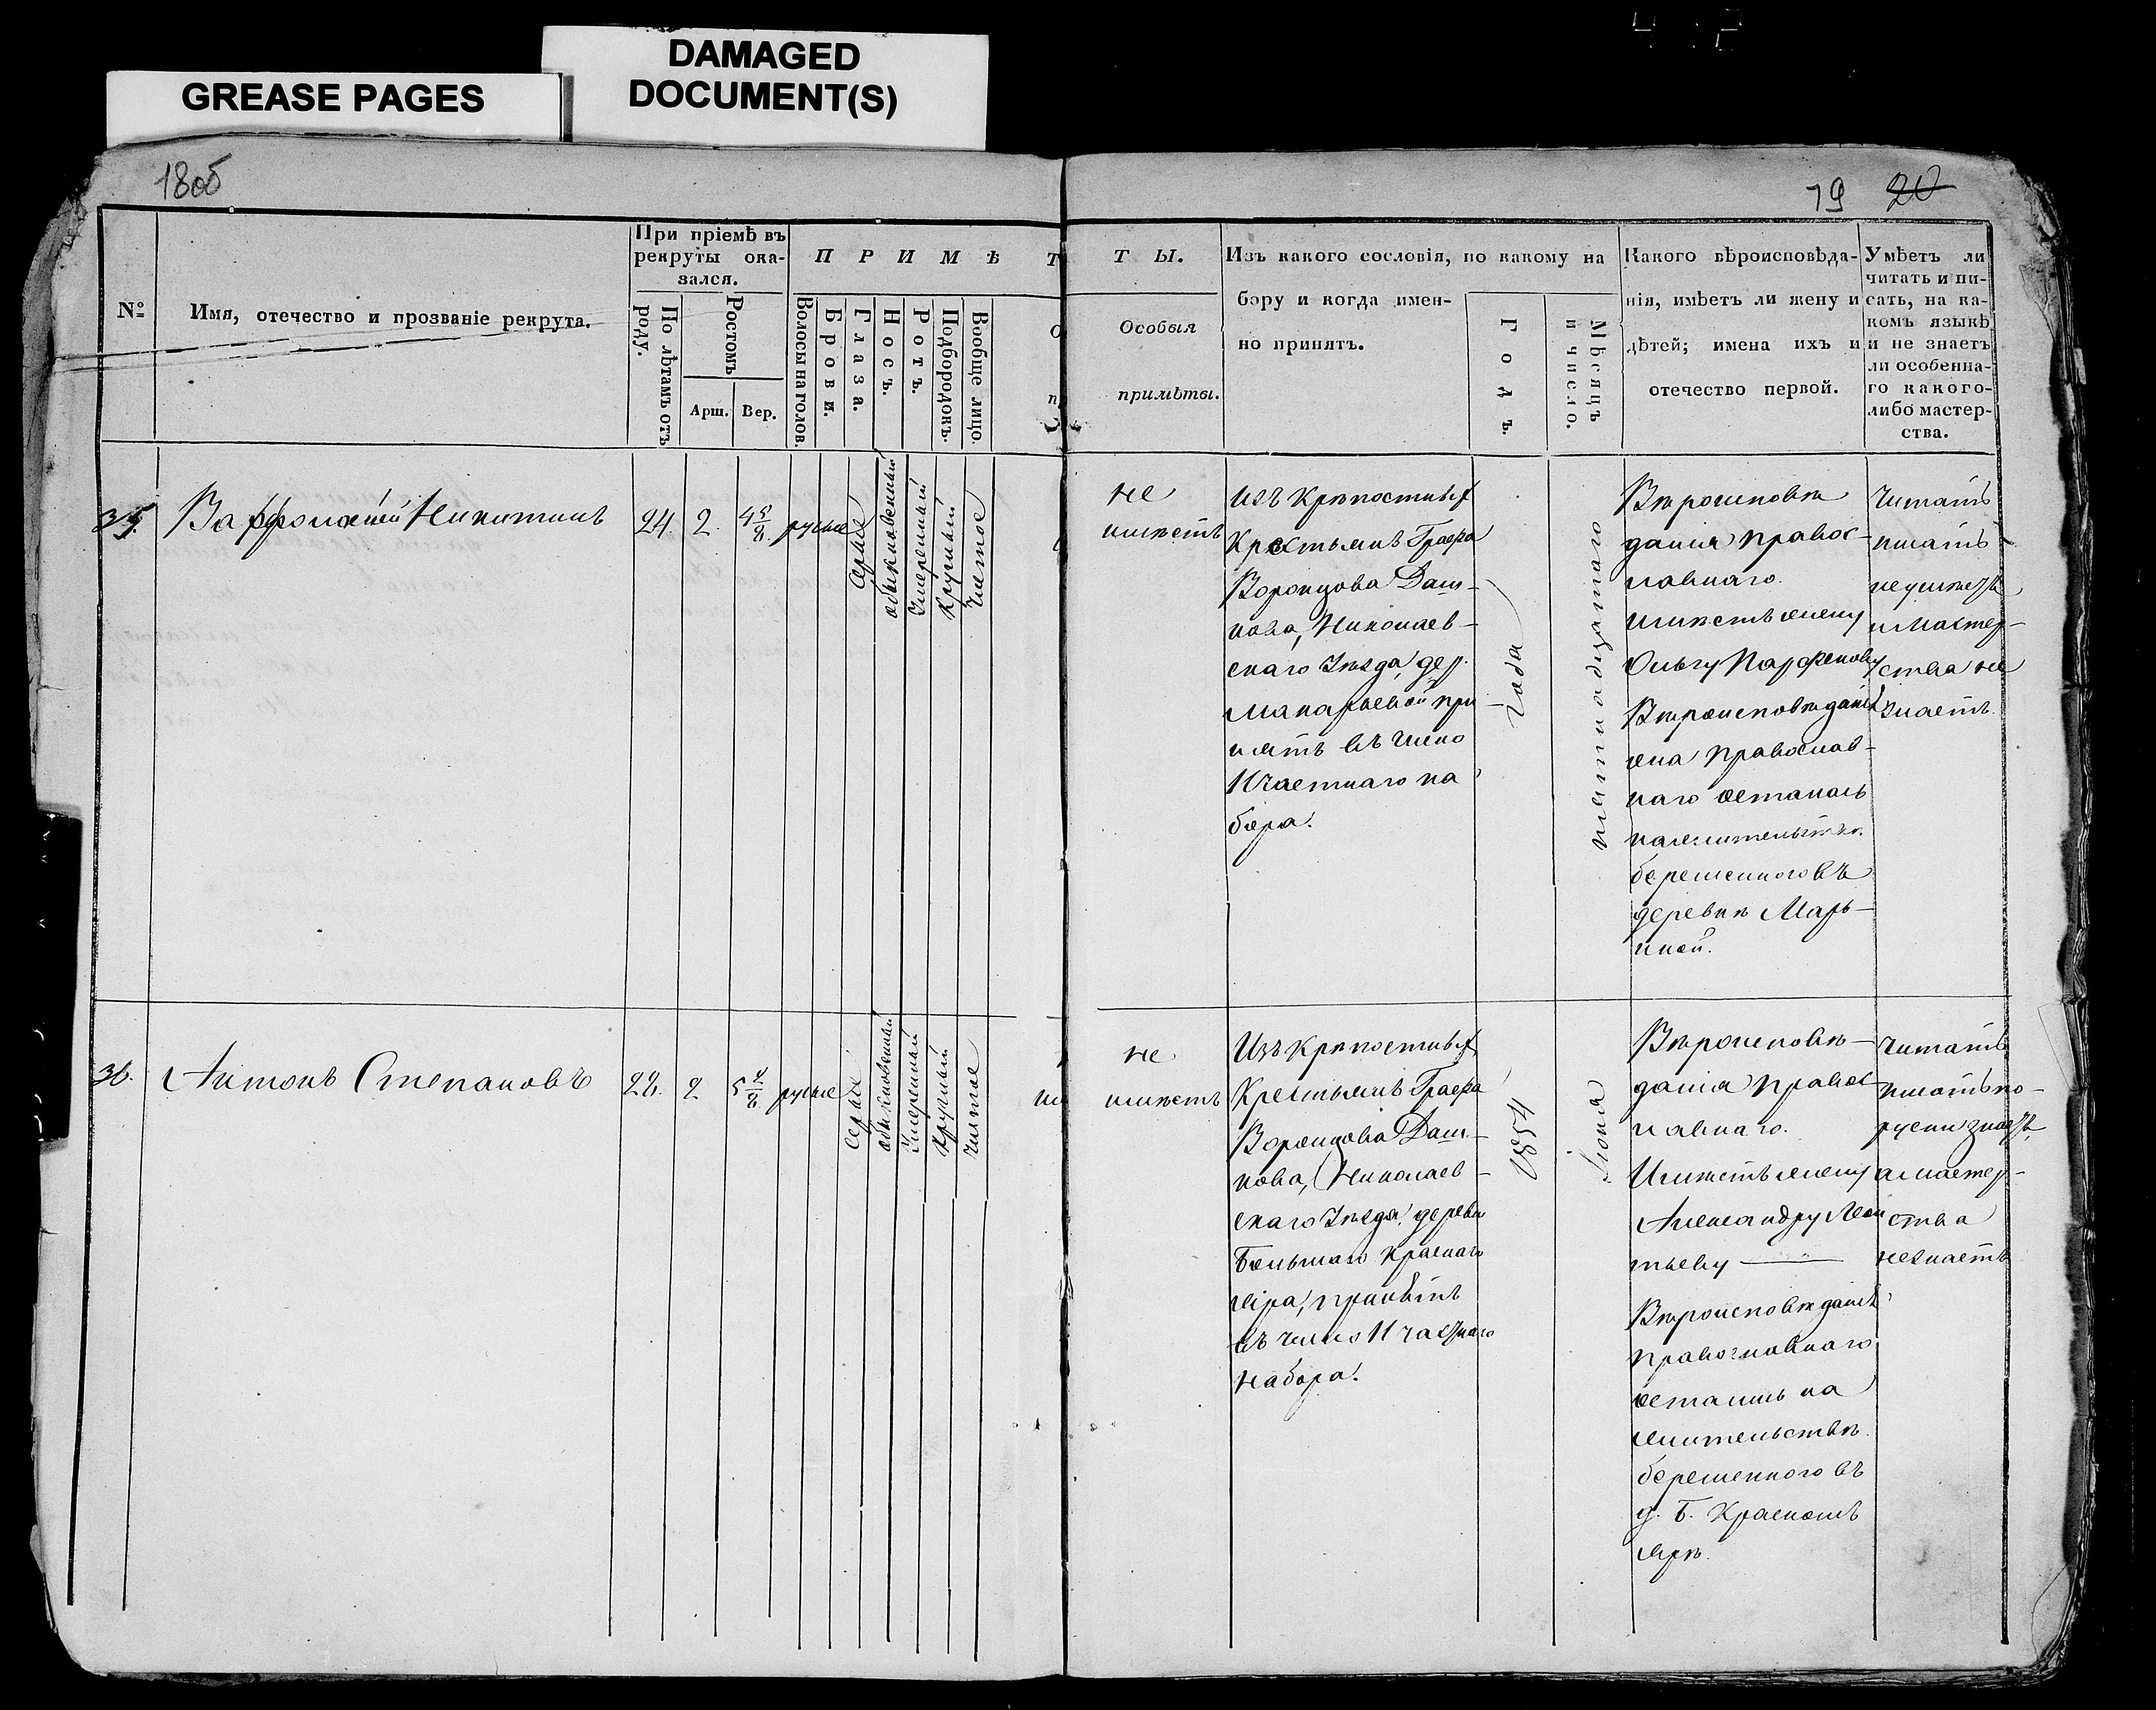 GREASE PAGES
DAMAGED
DOCUMENT(S)
18об
19 20
№
Имя, отечество и прозваніе рекрута.
При пріемѣ въ
рекруты ока-
зался.
По лѣтамъ отъ
роду.
Ростомъ
Арш.
Вер.
П Р И М Ѣ Т
Волосы на голов.
Брови.
Глаза.
Носъ.
Ротъ.
Подбородокъ.
Вообще лицо.
Т Ы.
Особыя
примѣты.
Изъ какого сословія, по какому на
бору и когда имен-
но принятъ.
Годъ.
Мѣсяцъ
и число.
Какого вѣроисповѣда-
нія, имѣетъ ли жену и
дѣтей; имена ихъ и
отечество первой.
Умѣетъ ли
читать и пи-
сать, на ка-
комъ языкѣ
и не знаетъ
ли особенна-
го какого-
либо мастер-
ства.
35.
Варфоломей Никитинъ
24.
2.
4 5/8
русые
Сѣрые
обыкновенный
Умеренный
Круглый
Чистое
не
имѣетъ
изъ Крѣпостныхъ
Крестьянъ Графа
Воронцова Даш-
кова, Николаев-
скаго Уѣзда, дер.
Макарьевой при
нятъ въ число
11 частнаго на
бора.
года
пятнадцатаго
Вѣроисповѣ
данія правос-
лавнаго.
имѣетъ жену
Ольгу Парфенову
Вѣроисповѣданія
она православ-
наго осталась
на жительствѣ
беременного въ
деревнѣ Марь-
иной.
Читать
писать
не умѣетъ
и Мастер-
ства не
знаетъ.
36.
Антонъ Степановъ
28.
2
5 4/8
русые
Сѣрые
обыкновенный
Умеренный
Круглый
Чистое
не
имѣетъ
Изъ Крѣпостныхъ
Крестьянъ Графа
Воронцова Даш-
кова, Николаев-
скаго Уѣзда, деревни
Большаго Краснаго
Яра, принятъ
въ число 11 частнаго
набора.
1854
Іюня
Вѣроисповѣ-
данія правос-
лавнаго.
Имѣетъ жену
Александру Леон
тьеву
Вѣроисповѣданія
православнаго
осталась на
жительствѣ
беременного въ
д. Б. Красномъ
Ярѣ.
Читать
писать по-
руски знаетъ,
а мастер-
ства
не знаетъ